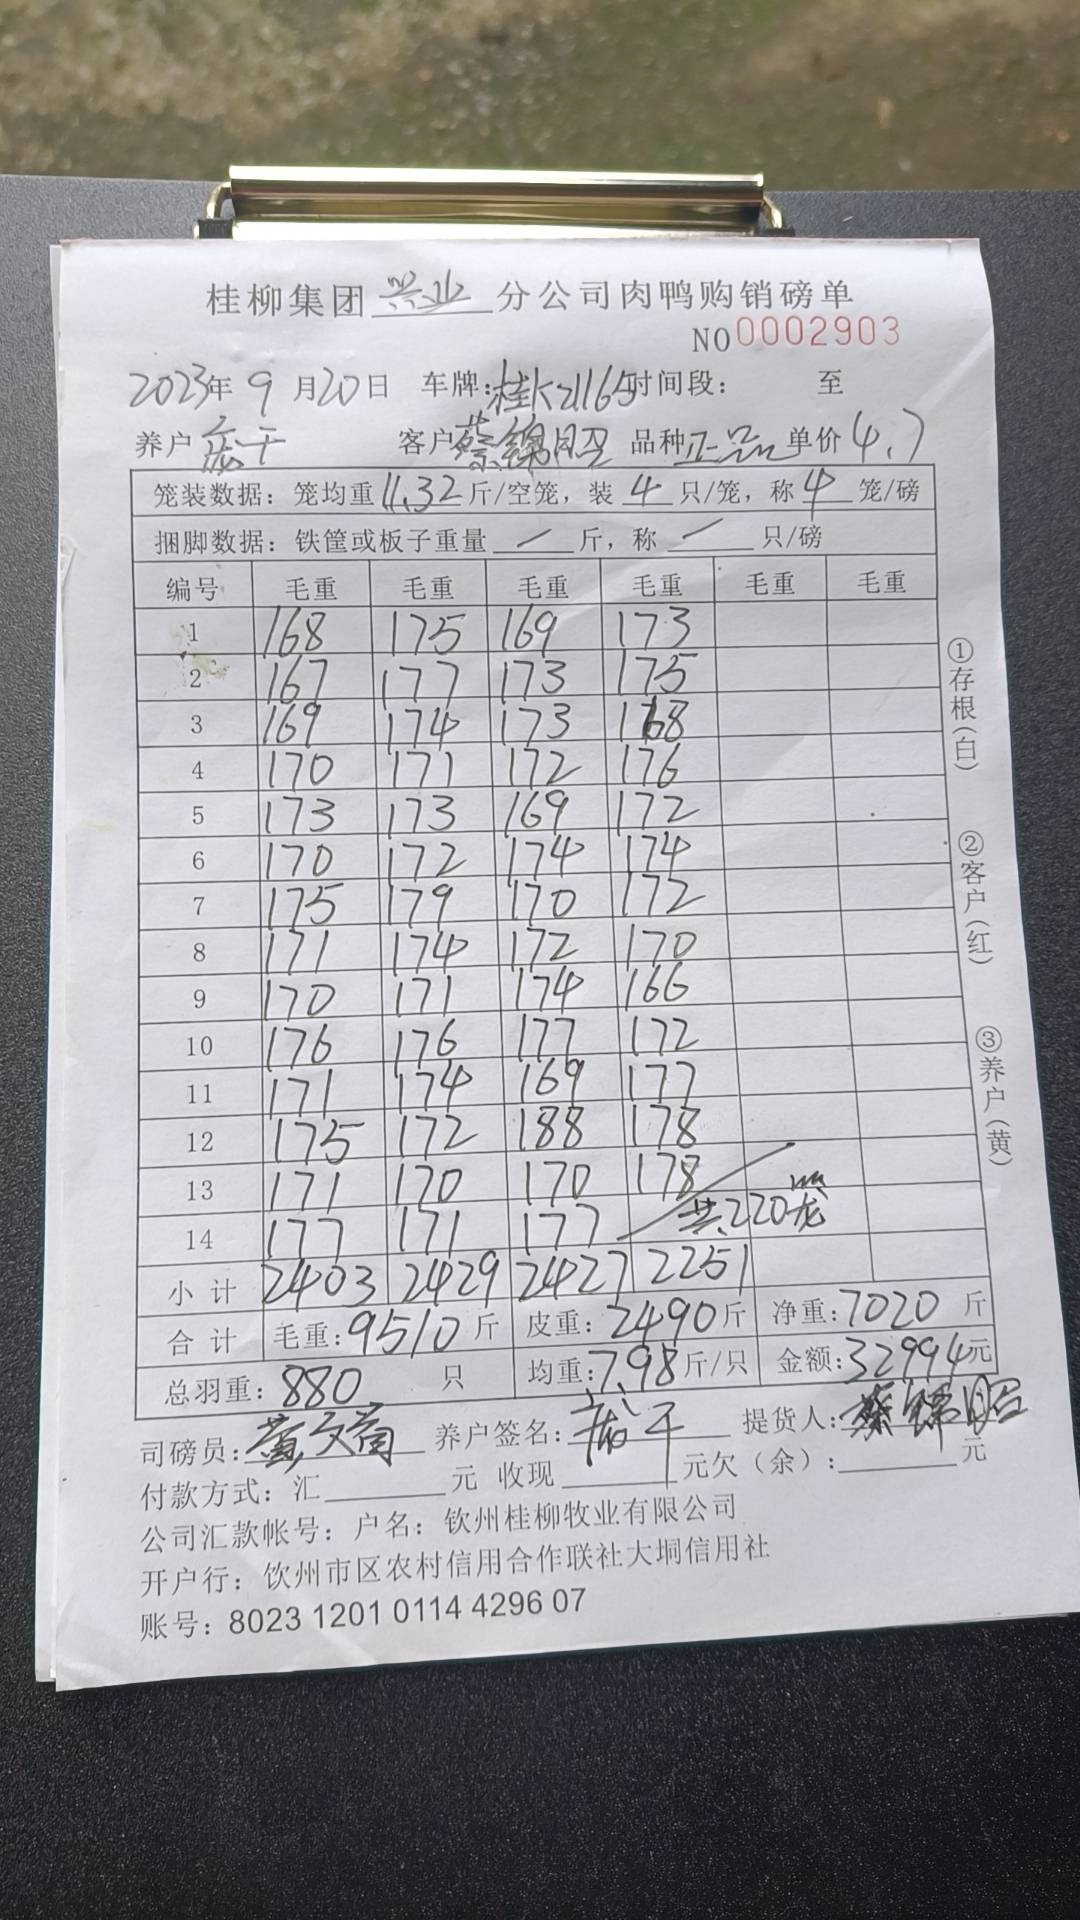 桂柳集团兴业分公司肉鸭购销磅单
NO0002903
2023年9月20日 车牌:桂K21165时间段: 至
养户 庞干 客户蔡锦昭 品种正品 单价4.7
笼装数据:笼均重11.32斤/空笼,装4只/笼,称4笼/磅
捆脚数据:铁筐或板子重量 / 斤,称 / 只/磅
编号 毛重 毛重 毛重 毛重 毛重 毛重
1 168 175 169 173
2 167 177 173 175
3 169 174 173 168
4 170 171 172 176
5 173 173 169 172
6 170 172 174 174
7 175 179 170 172
8 171 174 172 170
9 170 171 174 166
10 176 176 177 172
11 171 174 169 177
12 175 172 188 178
13 171 170 170 178
14 177 171 177 共220笼
小计 2403 2429 2427 2251
合计 毛重:9510斤 皮重:2490斤 净重:7020斤
总羽重:880只 均重:7.98斤/只 金额:32994元
司磅员: 养户签名:庞干 提货人:蔡锦昭
付款方式:汇 元 收现 元欠(余): 元
公司汇款帐号:户名:钦州桂柳牧业有限公司
开户行:钦州市区农村信用合作联社大垌信用社
账号:8023 1201 0114 4296 07
①存根(白)
②客户(红)
③养户(黄)